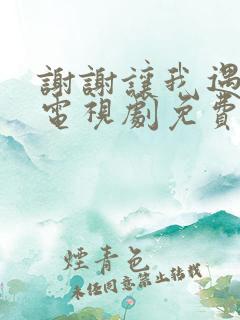 謝謝讓我遇
電視劇免費
煙青色
未經同意禁止轉載